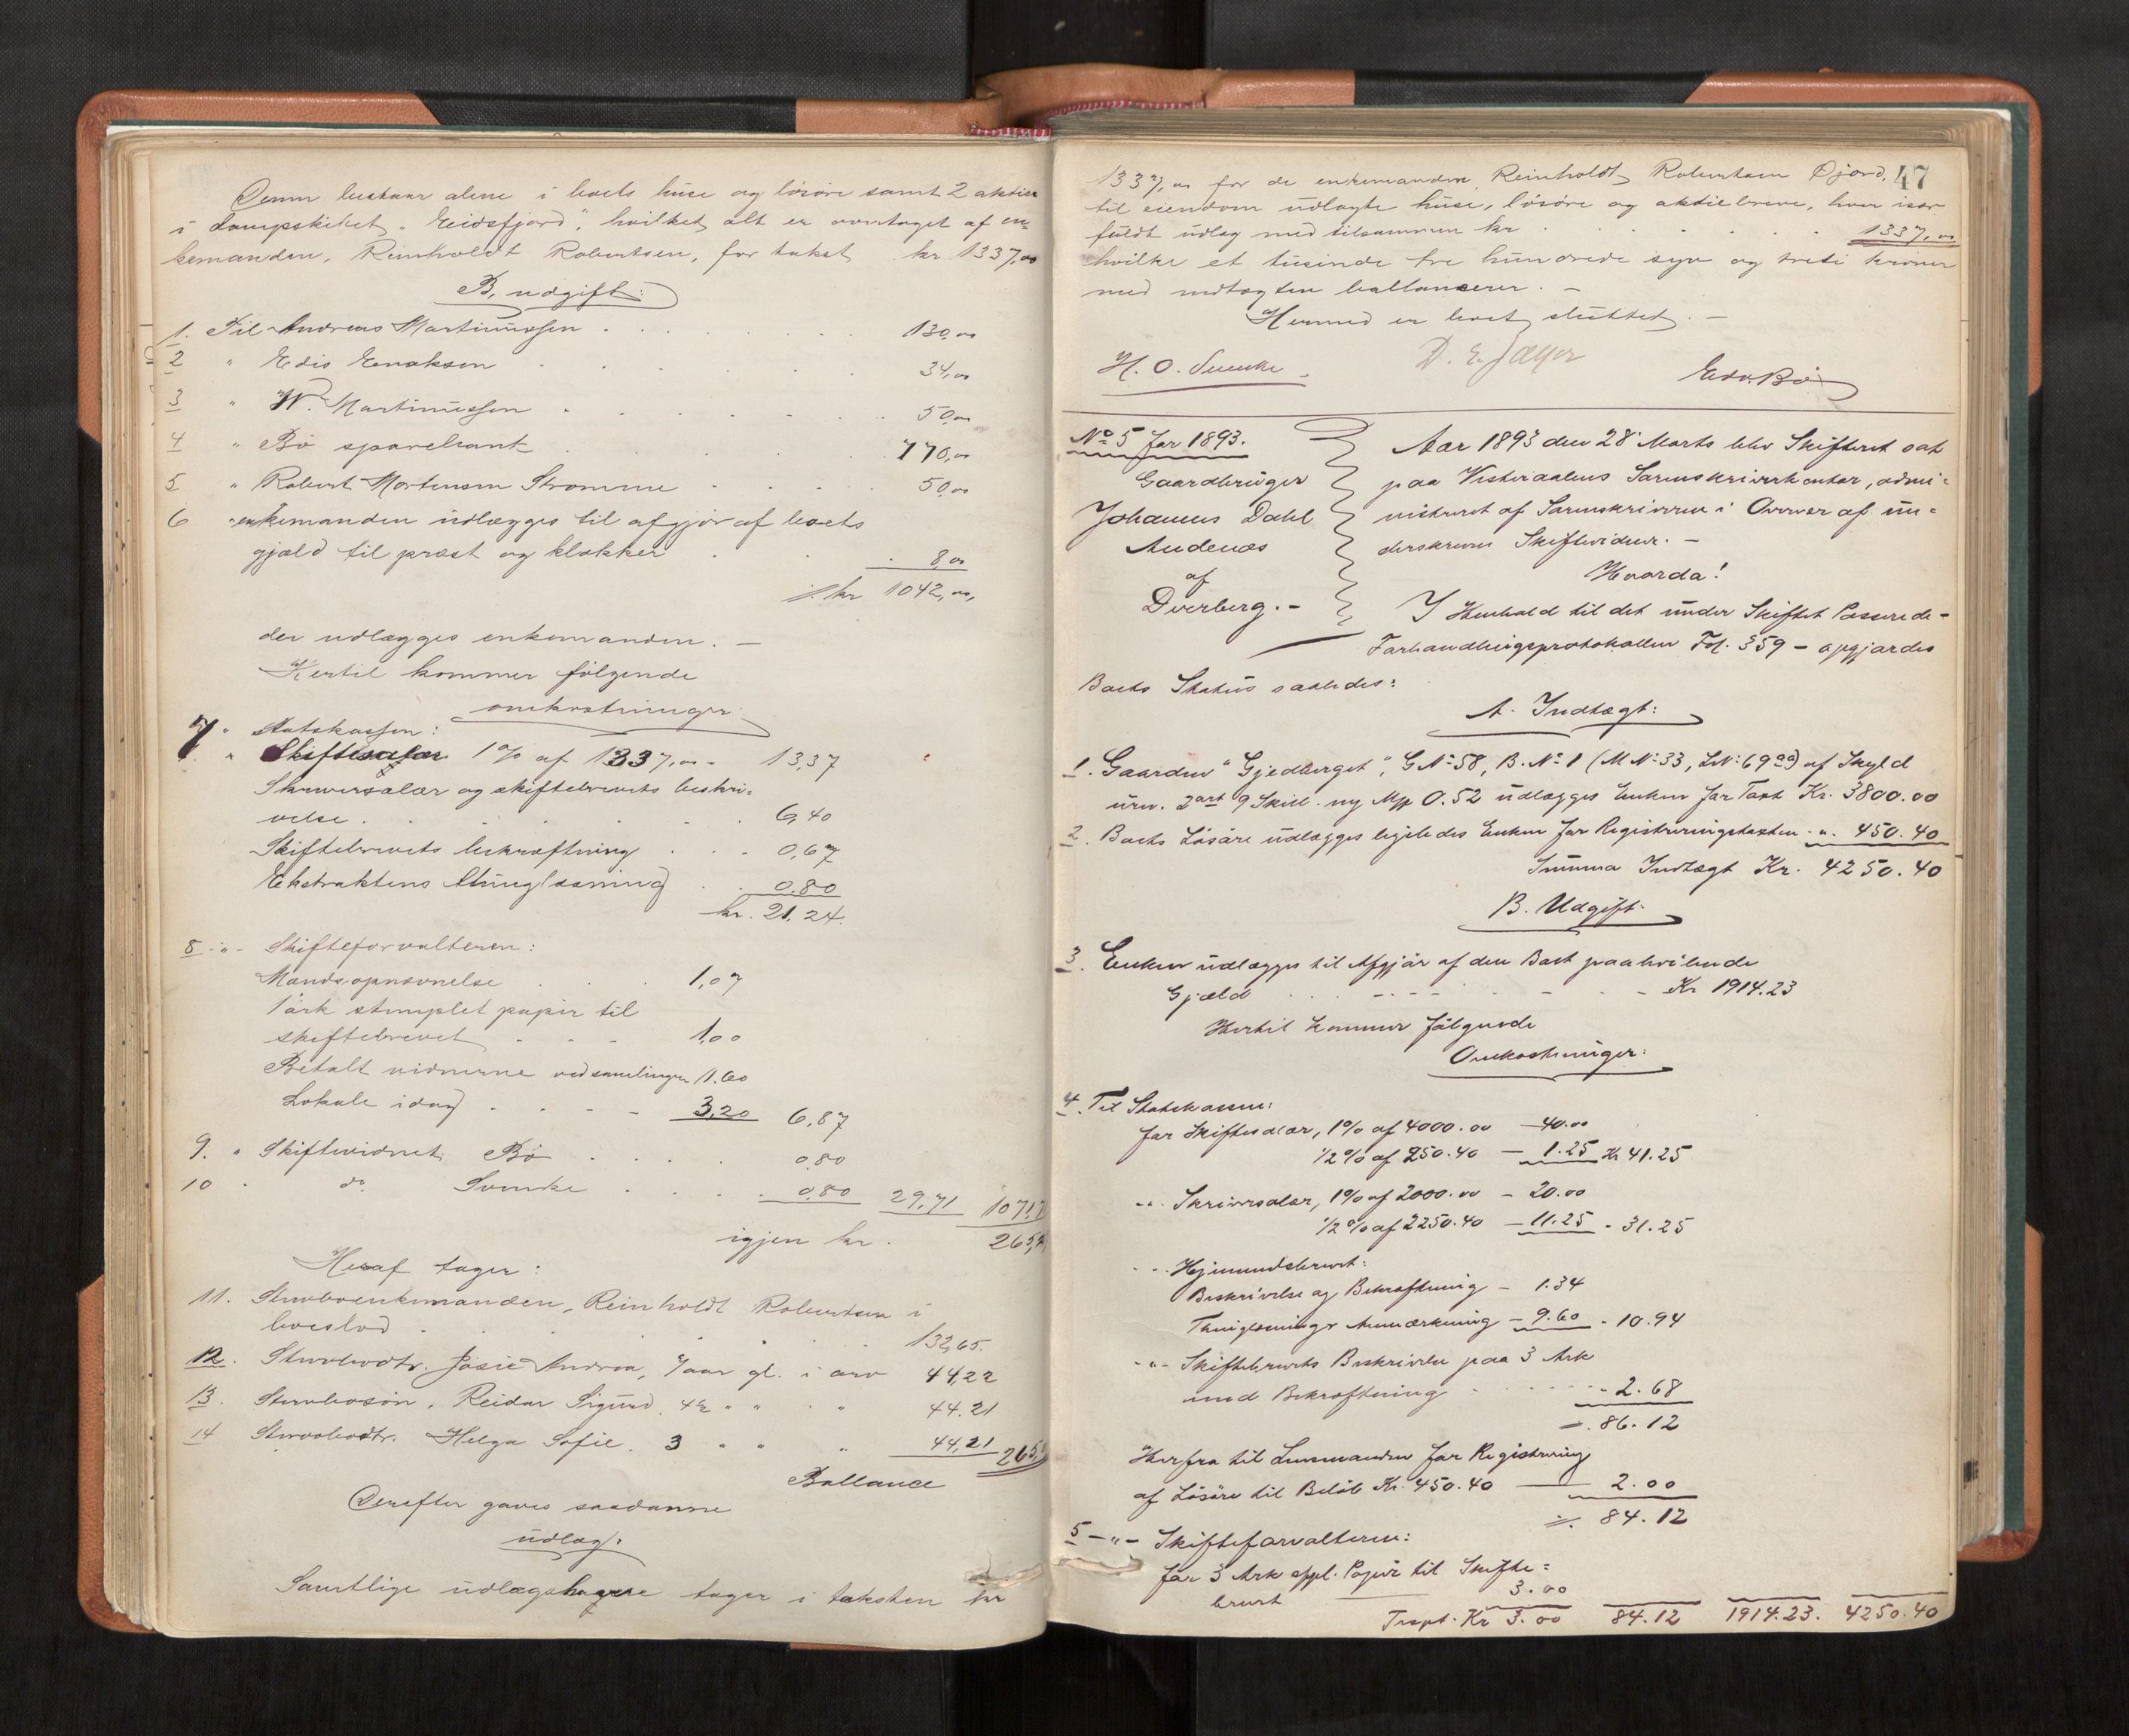 Denne bestaar alene i boets huse og løsøre samt 2 aktier
i dampskibet "Eidsfjord", hvilket alt er overtaget af en-
kemanden, Reinholdt Robertsen, for takst kr 1337,00
B, udgift:
1. Til Andreas Martinussen . . . 130,00
2 " Edis Enoksen . . . 34,00
3 " W. Martinussen . . . 50,00
4 " Bø sparebank . . . 770,00
5 " Robert Mortensen Strømme . . . 50,00
6 " enkemanden udlægges til afgjør af boets
gjæld til præst og klokker . . . 8,00
kr 1042,00,
der udlægges enkemanden. —
Hertil kommer følgende
omkostninger:
7 " Statskassen:
" Skiftesalær 1% af 1337,00 - 13,37
Skriversalær og skiftebrevets beskri-
velse . . . 6,40
Skiftebrevets bekræftning . . . 0,67
Ekstraktens thinglæsning . . 0.80
kr. 21,24.
8 -"- Skifteforvalteren:
Mandsopnævnelse . . . 1,07
1 ark stemplet papir til
skiftebrevet . . . 1,00
Betalt vidnerne ved samlingen 1.60
Lokale idag . . . 3,20 6,87
9. " Skiftevidnet Bø . . . 0,80
10 " do. Svenke . . . 0,80 29,71 1071,7
igjen kr. 265,
Heraf tager:
11. Stervboenkemanden, Reinholdt Robertsen i
boeslod . . . 132,65.
12. Stervbodtr. Josie Andrea, 7 aar gl. i arv 44,22
13. Stervbosøn, Reidar Sigurd, 4½ " " " 44.21
14 Stervbodtr. Helga Sofie. 3 " " " 44,21 265,
Ballance
Derefter gaves saadanne
udlæg:
Samtlige udlægshavere tager i taksten kr
47
1337,00 for de enkemanden Reinholdt Robertsen Øjord,
til eiendom udlagte huse, løsøre og aktiebreve, hver især
fuldt udlæg med tilsammen kr . . . 1337,00
hvilke et tusinde tre hundrede syv og treti kroner
med indtægten ballancerer. —
Hermed er boet sluttet. —
H. O. Svenke D. E. Jæger Edv. Bø
No 5 for 1893.
Gaardbruger
Johannes Dahl
Andenæs
af
Dverberg. —
Aar 1893 den 28 Marts blev Skifteret sat
paa Vesteraalens Sorenskriverkontor, admi-
nistreret af Sorenskriveren i Overvær af un-
derskrevne Skiftevidner. —
Hvorda!
I Henhold til det under Skiftet Passerede -
Forhandlingsprotokollen Fol. 359 - opgjordes
Boets Status saaledes:
A. Indtægt:
1. Gaarden "Gjedberget", G No 58, B. No 1 (M No 33, L No 69 a) af Skyld
urev. 2 ort 9 Skill. ny Mk 0.52 udlægges Enken for Taxt Kr. 3800.00
2. Boets Løsøre udlægges ligeledes Enken for Registreringstaxten - " 450.40
Summa Indtægt Kr. 4250.40
B. Udgift:
3. Enken udlægges til Afgjør af den Boet paahvilende
Gjæld . . . Kr 1914.23
Hertil kommer følgende
Omkostninger:
4. Til Statskassen:
for Skiftesalær, 1% af 4000.00 — 40.00
1/2% af 250.40 — 1.25 Kr 41.25
-"- Skriversalær, 1% af 2000.00 - 20.00
1/2% af 2250.40 — 11.25 - 31.25
-"- Hjemmelsbrevet:
Beskrivelse og Bekræftning - 1.34
Thinglæsning & Anmærkning - 9.60 - 10.94
-"- Skiftebrevets Beskrivelse paa 3 Ark
med Bekræftning . . . 2.68
86.12
Herfra til Lensmanden for Registrering
af Løsøre til Beløb Kr. 450.40 — 2.00
84.12
5 -"- Skifteforvalteren:
for 3 Ark stpl. Papir til Skifte-
brevet 3.00
Trspt. Kr 3.00 84.12 1914.23. 4250.40